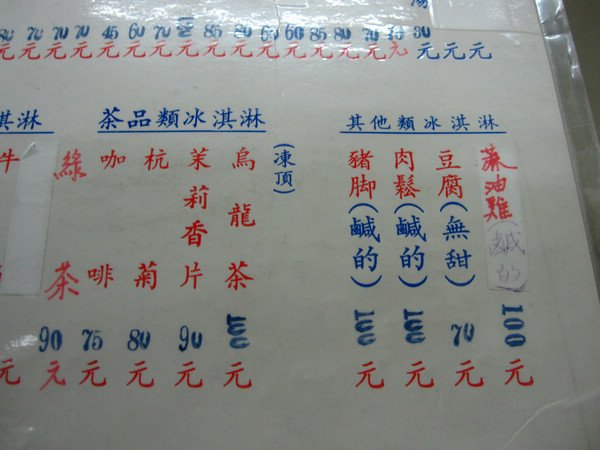 70 70 70 45 60 70 85 80 60 85 80 70
元 元 元 元 元 元 元 元 元 元 元 元 元 元 元 元 元
其他類冰淇淋
麻油雞(鹹的) 100 元
豆腐(無甜) 70 元
肉鬆(鹹的) 100 元
豬脚(鹹的) 100 元
茶品類冰淇淋
(凍頂)
烏龍茶 100 元
茉莉香片 90 元
杭菊 80 元
咖啡 75 元
綠茶 90 元
淇淋
牛
元